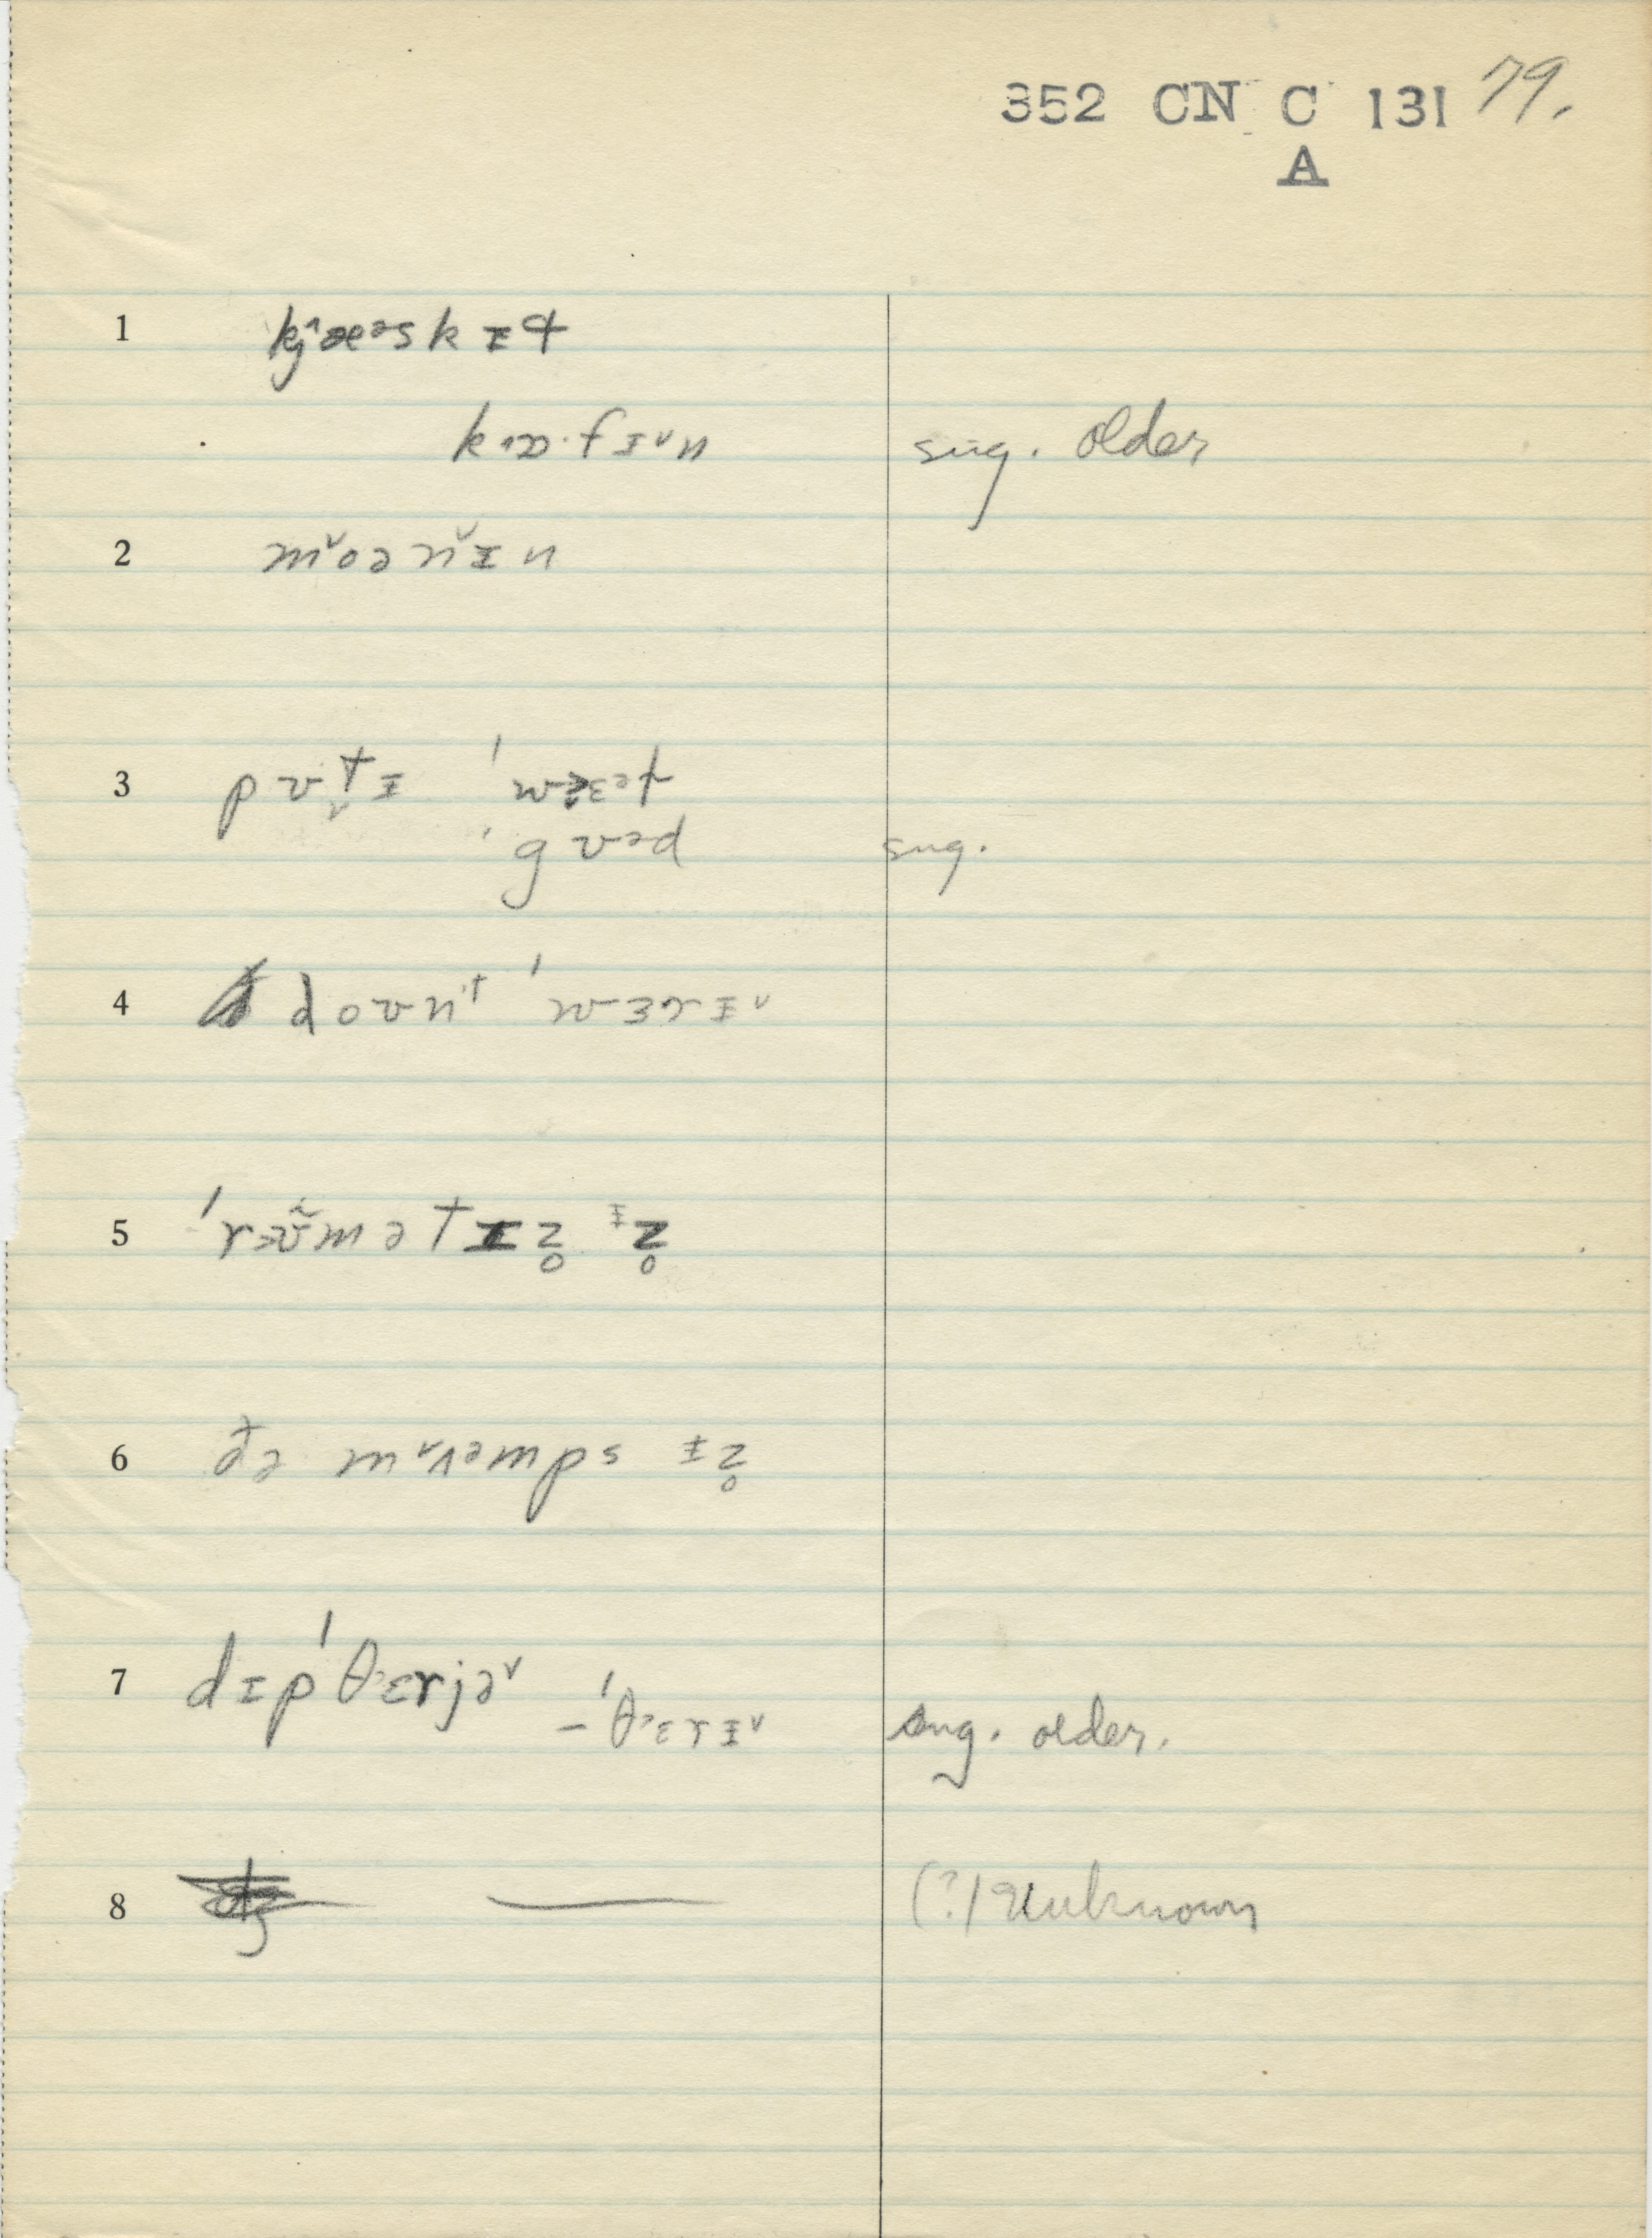 352 CN C 131 79.
A
1 kj^æᵊskɪt
kɔ·fɪ˅n sug. older
2 m˅oən˅ɪn
3 pʊtɪ ˈwɛᵊt
ˈgʊᵊd sug.
4 doʊnᵗ ˈwɜrɪ˅
5 ˈrəʊ̃mətɪz̥ ᵻz̥
6 ðə m˅ʌᵊmps ɪz̥
7 dɪpˈθɛrjə˅
– ˈθɛrɪ˅ sug. older.
8 — (?) Unknown